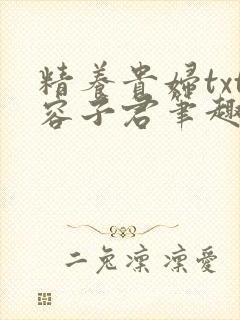 精養貴婦txt
容子君筆趣
二兔凜凜愛